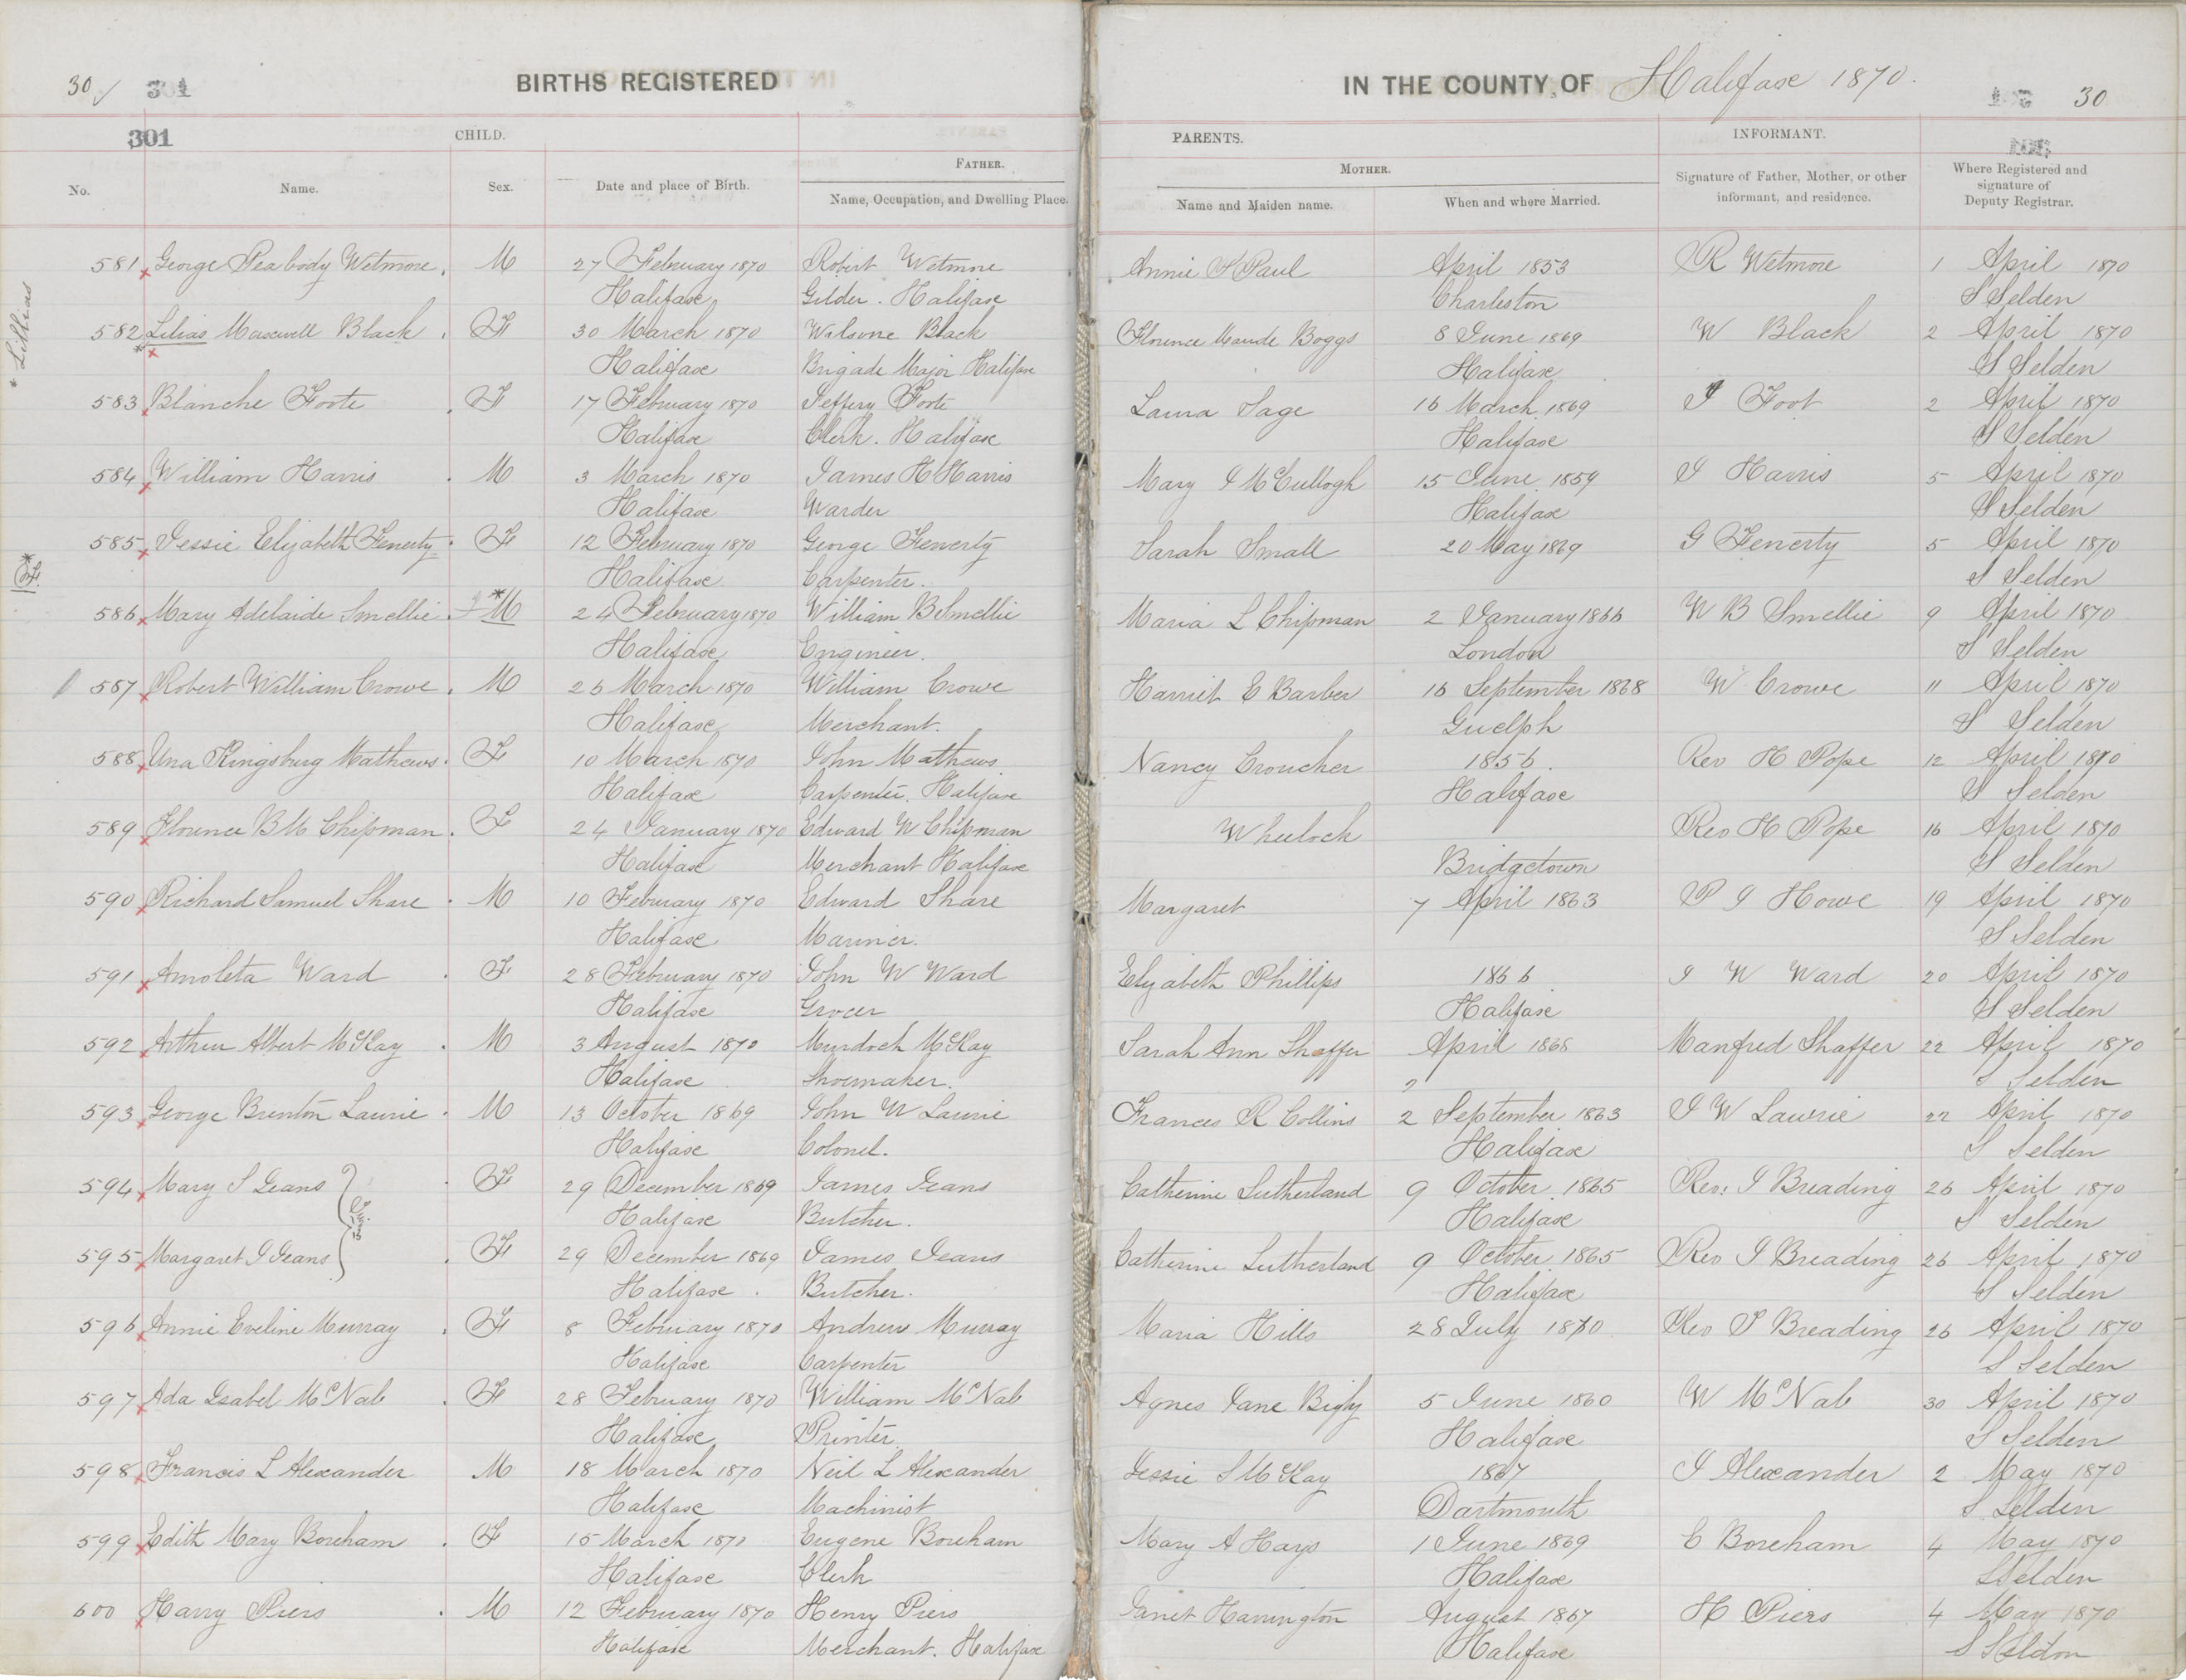 30 301
BIRTHS REGISTERED
IN THE COUNTY OF Halifax 1870.
30
301
CHILD.
PARENTS.
INFORMANT.
FATHER.
MOTHER.
No. Name. Sex. Date and place of Birth. Name, Occupation, and Dwelling Place. Name and Maiden name. When and where Married. Signature of Father, Mother, or other informant, and residence. Where Registered and signature of Deputy Registrar.
581 George Peabody Wetmore. M 27 February 1870 Robert Wetmore Annie S Paul April 1853 R Wetmore 1 April 1870
Halifax Gilder. Halifax Charleston S Selden
* Lillias
582 Lilias Maxwell Black. F 30 March 1870 Wilsone Black Florence Maude Boggs 8 June 1869 W Black 2 April 1870
* Halifax Brigade Major Halifax Halifax S Selden
583 Blanche Foote. F 17 February 1870 Jeffery Foote Laura Sage 16 March 1869 J Foot 2 April 1870
Halifax Clerk. Halifax Halifax S Selden
584 William Harris. M 3 March 1870 James H Harris Mary J McCullogh 15 June 1859 J Harris 5 April 1870
Halifax Warder Halifax S Selden
585 Jessie Elizabeth Fenerty. F 12 February 1870 George Fenerty Sarah Small 20 May 1869 G Fenerty 5 April 1870
* F. Halifax Carpenter. S Selden
586 Mary Adelaide Smellie. *M 24 February 1870 William B Smellie Maria L Chipman 2 January 1866 W B Smellie 9 April 1870
Halifax Engineer. London S Selden
587 Robert William Crowe. M 26 March 1870 William Crowe Harriet E Barber 16 September 1868 W Crowe 11 April 1870
Halifax Merchant. Guelph S Selden
588 Una Kingsbury Mathews. F 10 March 1870 John Mathews Nancy Croucher 1856. Rev H Pope 12 April 1870
Halifax Carpenter. Halifax Halifax S Selden
589 Florence B M Chipman. F 24 January 1870 Edward W Chipman Wheelock Rev H Pope 16 April 1870
Halifax Merchant Halifax Bridgetown S Selden
590 Richard Samuel Share. M 10 February 1870 Edward Share Margaret 7 April 1863 P J Howe 19 April 1870
Halifax Mariner. S Selden
591 Amoleta Ward. F 28 February 1870 John W Ward Elizabeth Phillips 1866 J W Ward 20 April 1870
Halifax Grocer Halifax S Selden
592 Arthur Albert McKay. M 3 August 1870 Murdoch McKay Sarah Ann Shaffer April 1868 Manfred Shaffer 22 April 1870
Halifax Shoemaker. ? S Selden
593 George Brenton Laurie. M 13 October 1869 John W Laurie Frances R Collins 2 September 1863 J W Lawrie 22 April 1870
Halifax Colonel. Halifax S Selden
594 Mary S Jeans. F 29 December 1869 James Jeans Catherine Sutherland 9 October 1865 Rev. J Breading 26 April 1870
Halifax Butcher. Halifax S Selden
595 Margaret J Jeans. F 29 December 1869 James Jeans Catherine Sutherland 9 October 1865 Rev J Breading 26 April 1870
Halifax. Butcher. Halifax S Selden
596 Annie Eveline Murray. F 8 February 1870 Andrew Murray Maria Hills 28 July 1870 Rev J Breading 26 April 1870
Halifax Carpenter S Selden
597 Ada Isabel McNab. F 28 February 1870 William McNab Agnes Jane 5 June 1860 W McNab 30 April 1870
Halifax Printer. Halifax S Selden
598 Francis L Alexander M 18 March 1870 Neil L Alexander Jessie S McKay 1867 J Alexander 2 May 1870
Halifax Machinist Dartmouth S Selden
599 Edith Mary Boreham. F 15 March 1870 Eugene Boreham Mary A Hays 1 June 1869 E Boreham 4 May 1870
Halifax Clerk Halifax S Selden
600 Harry Piers. M 12 February 1870 Henry Piers Janet Harrington August 1867 H Piers 4 May 1870
Halifax Merchant. Halifax Halifax S Seldon